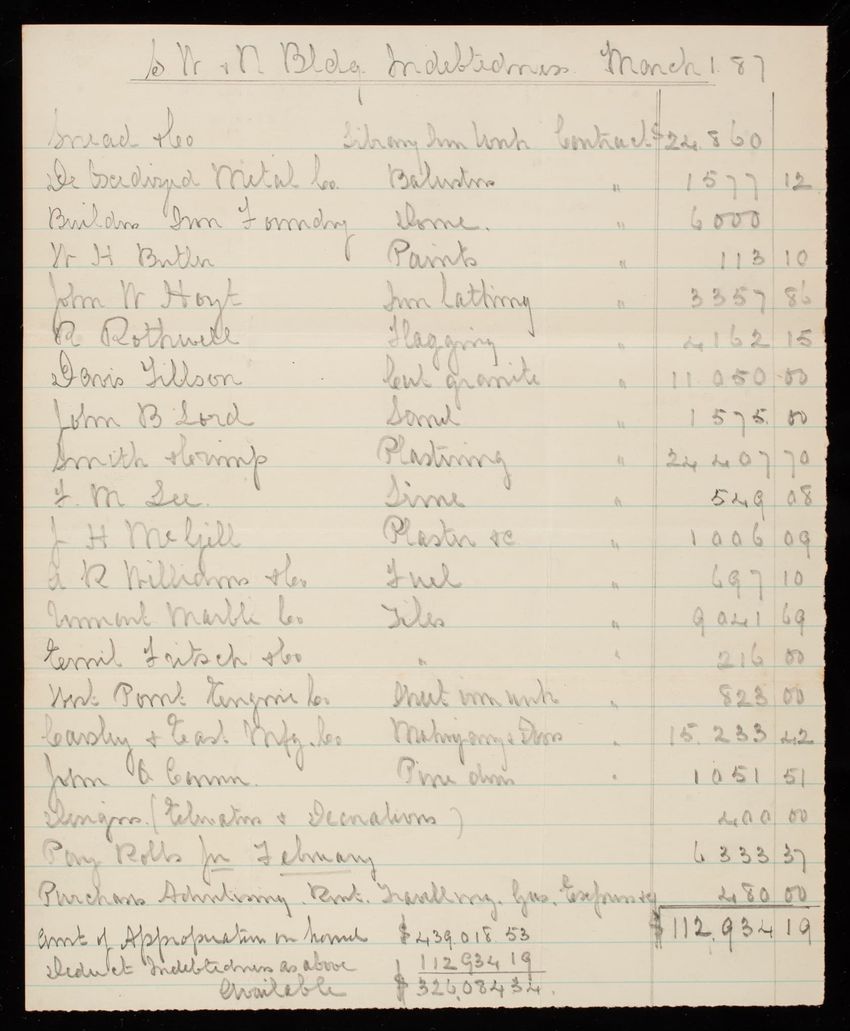 S W & N Bldg. Indebtedness. March 1. 87
Snead & Co Library Iron Work Contract $24.860
De Oxidized Metal Co. Balusters " 1577 12
Builders Iron Foundry Dome. " 6000
W H Butler Paints " 113 10
John W Hoyt Iron lathing " 3357 86
R Rothwell Flagging " 4162 15
Davis Tillson Cut granite " 11 050 00
John B Lord Sand " 1575. 00
Smith & Crimp Plastering " 24 407 70
F. M Lee. Lime " 549 08
J H McGill Plaster &c " 1006 09
A R Williams & Co Fuel " 697 10
Vermont Marble Co Tiles " 9 041 69
Emil Fritsch & Co " " 216 00
West Point Engine Co. Sheet iron work " 823 00
Mfg. Co Mahogany & Doors " 15. 233 42
John A Pine doors " 1051 51
Designs. (Elevators & Decorations) 400 00
Pay Rolls for February 6 333 37
Purchases Advertising. Rent. Travelling. Gas. 480 00
$112,934 19
Amt of Appropriation on hand $439.018.53
Deduct Indebtedness as above 112934 19
Available $326,084 34.